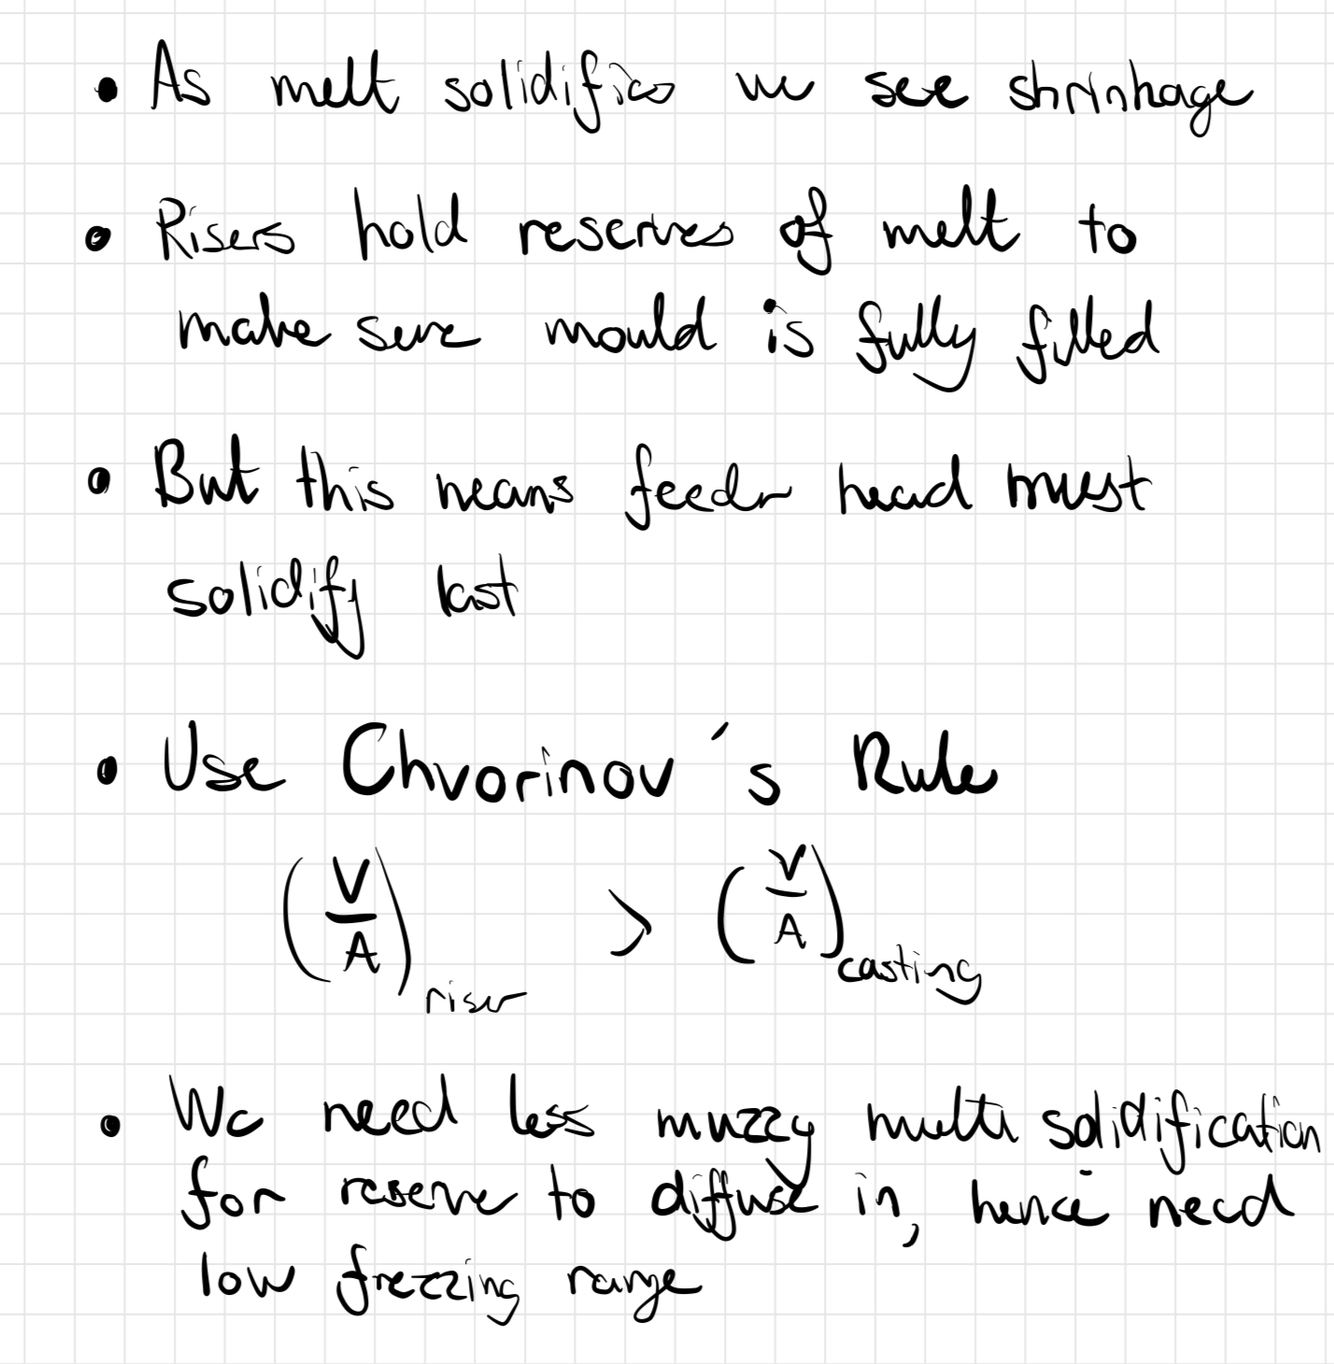 • As melt solidifies we see shrinkage
• Risers hold reserves of melt to
make sure mould is fully filled
• But this means feeder head must
solidify last
• Use Chvorinov's Rule
(V/A)riser > (V/A)casting
• We need less muzzy multi solidification
for reserve to diffuse in, hence need
low freezing range